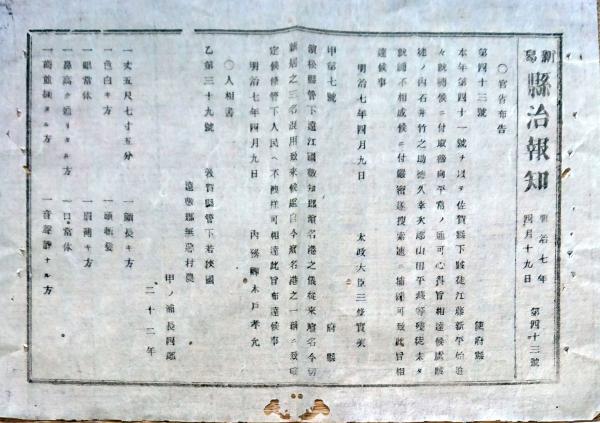 新潟縣治報知
明治七年
四月十九日
第四十三號
〇官省布告
第四十三號
使府縣
本年第四十一號ヲ以テ佐賀縣下賊徒江藤新平始追
々就縛候ニ付取締向平常ノ通可心得旨相達候處賊
徒ノ内石井竹之助德久幸次郎山田平藏等殘徒未タ
就縛不相成候ニ付嚴密遂搜索速ニ捕縛可致此旨相
達候事
明治七年四月九日
太政大臣三條實美
甲第七號
府縣
濱松縣管下遠江國敷知郡濱名港之儀從來濱名今切
新居之三名混用致來候處自今濱名港之一稱ニ致確
定候條管下人民ヘ不洩樣可相達此旨布達候事
明治七年四月九日
内務卿木戸孝允
〇人相書
乙第三十九號
敦賀縣管下若狹國
遠敷郡無悪村農
甲ノ浦長四郎
二十二年
一丈五尺七寸五分
一顔長キ方
一色白キ方
一頭散髪
一眼常体
一眉薄キ方
一鼻高ク通リタル方
一口常体
一齒並揃タル方
一音聲静ナル方